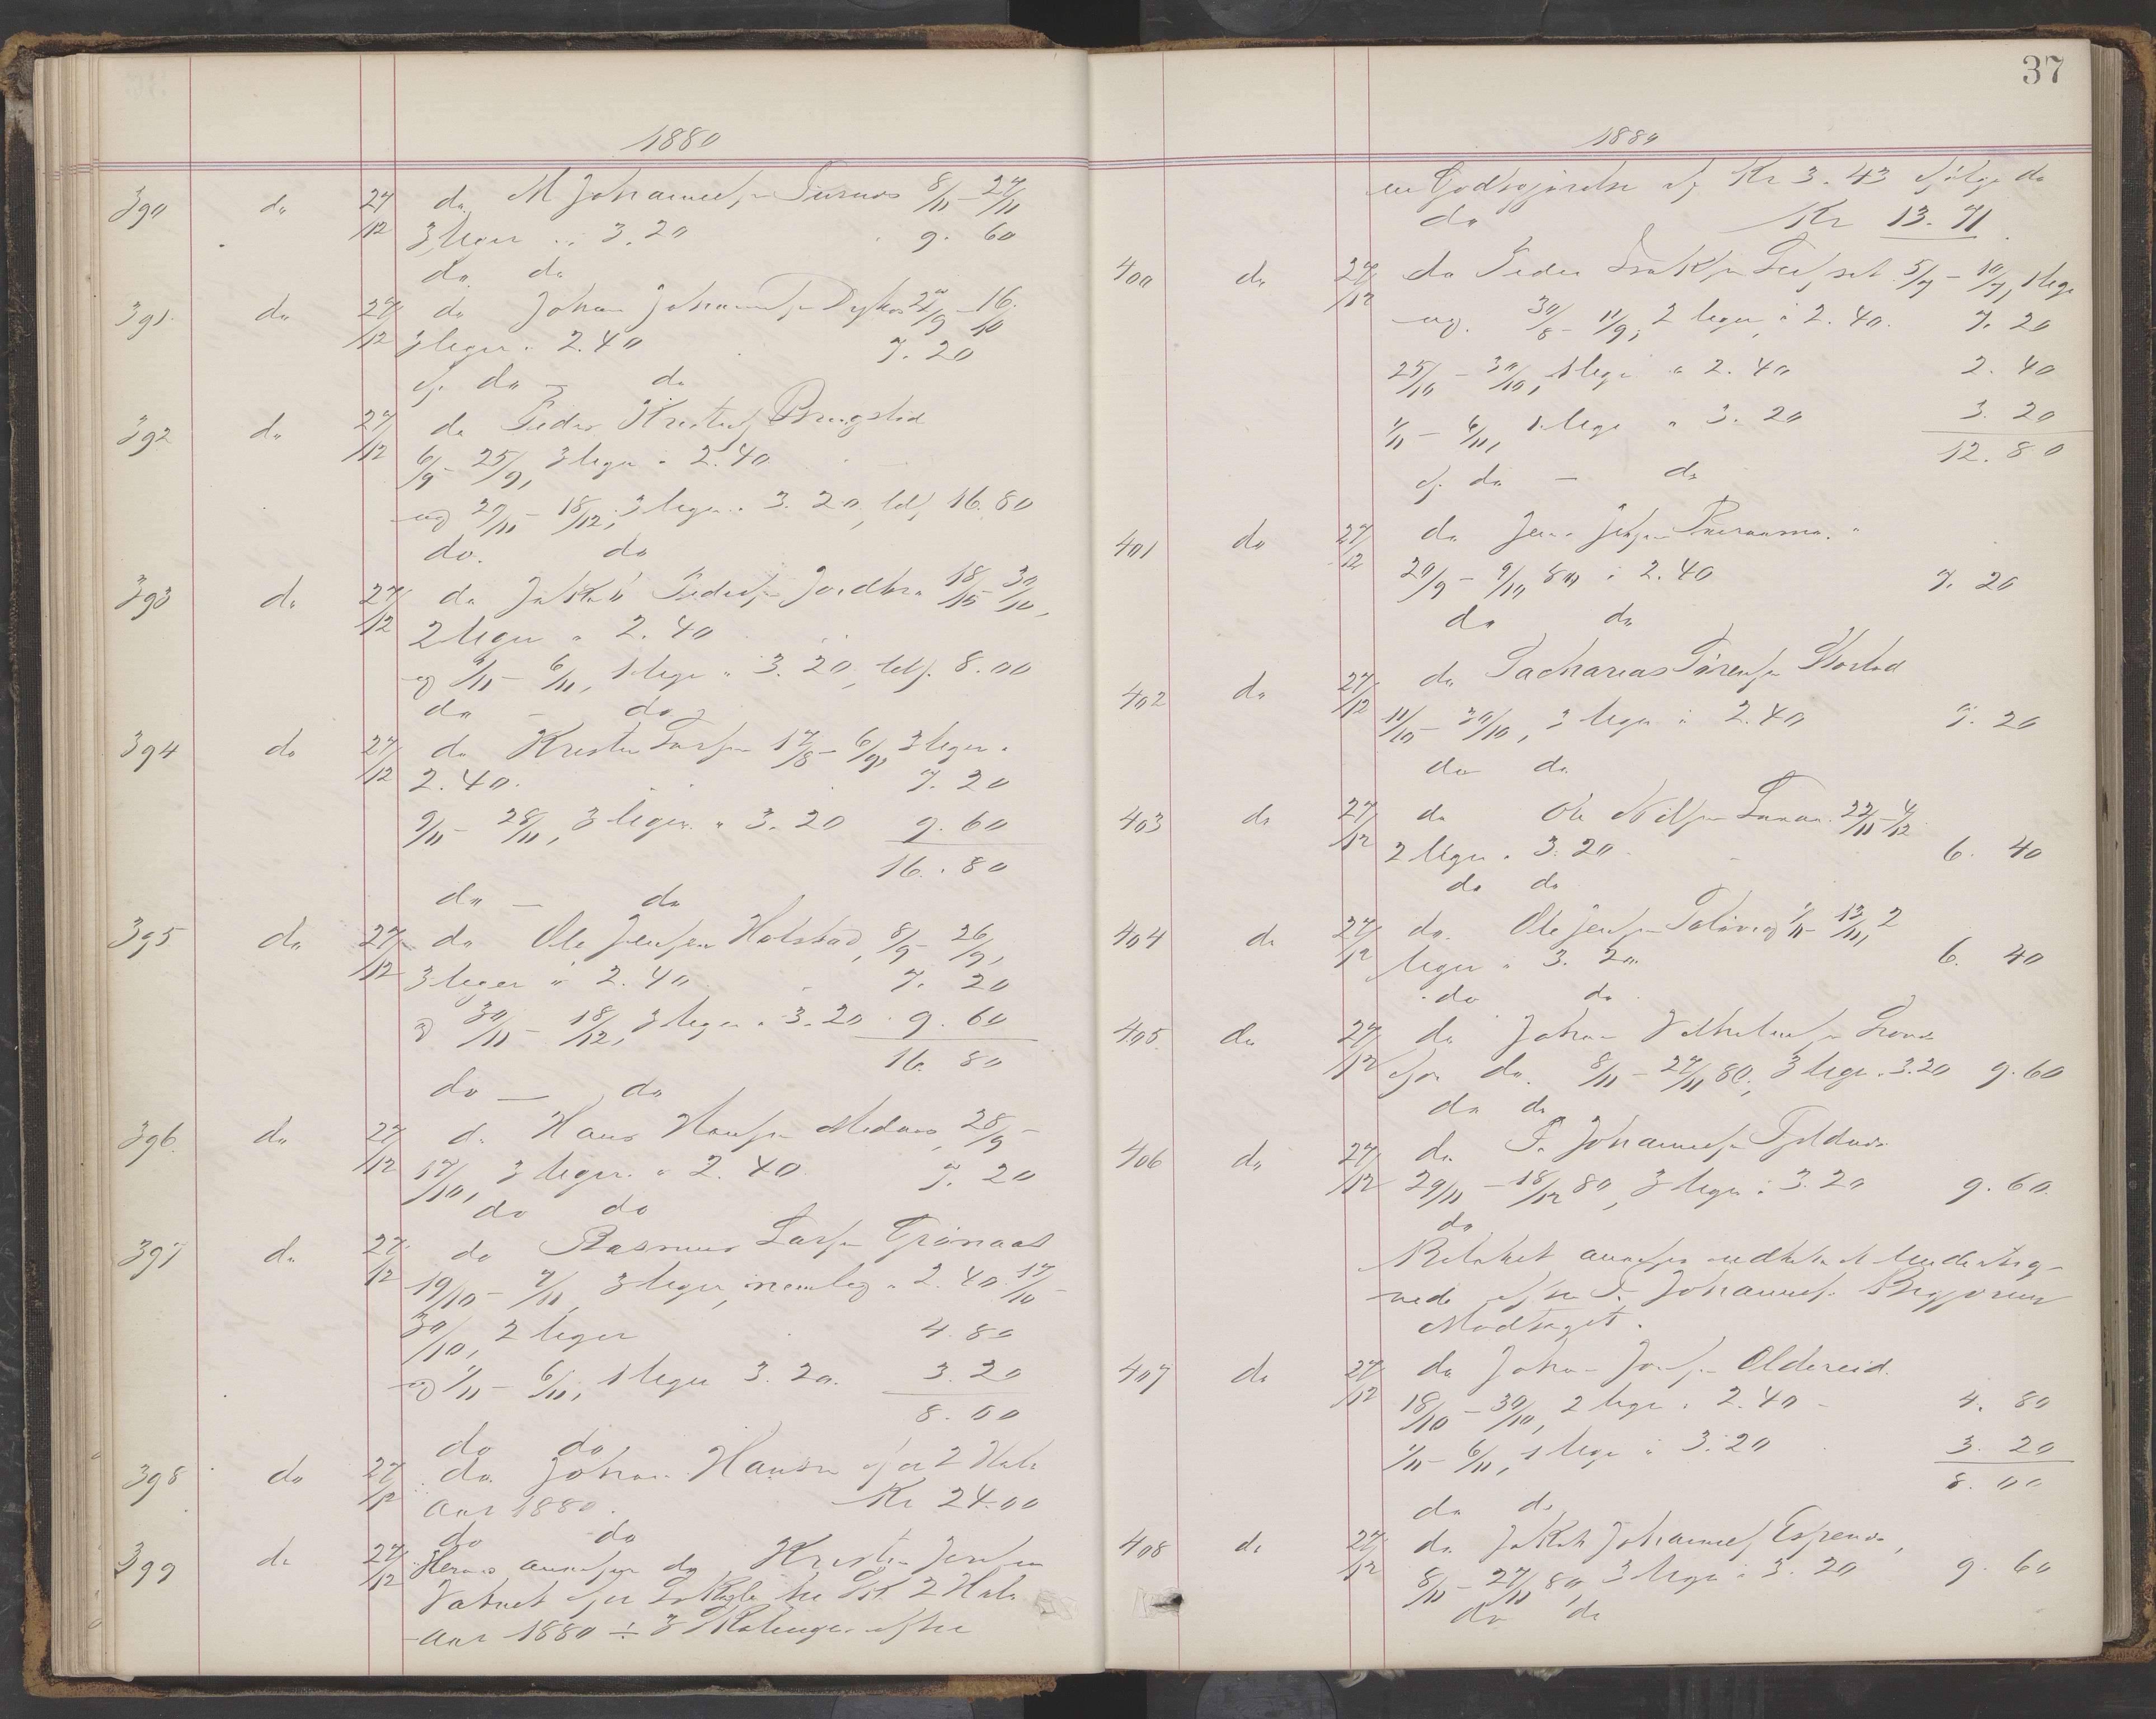 1880
390 do 27/12 do M Johannesen 8/11 - 27/11
3 leger a 3.20 9. 60
do do
391 do 27/12 do Johan Johannesen 27/9 - 16/10
3 leger a 2.40 7. 20
af do - do
392 do 27/12 do Peder Kristens. Bringslid
6/9 - 25/9, 3 leger a 2.40
og 29/11 - 18/12, 3 leger a 3.20, tils. 16.80
do. do
393 do 27/12 do Jakob Pedersen Jordbro 18/10 - 30/10,
2 leger a 2.40
og 1/11 - 6/11, 1 lege a 3.20, tils. 8.00
do - do
394 do 27/12 do Krister Larsen 17/8 - 6/9, 3 leger a
2.40. 7. 20
9/11 - 28/11, 3 leger a 3.20 9.60
16.80
do - do
395 do 27/12 do Ole Jensen Holstad, 8/9 - 26/9,
3 leger a 2.40 7. 20
og 30/11 - 18/12, 3 leger a 3.20 9.60
16. 80
do - do
396 do 27/12 do Hans Hansen 28/9 -
17/10, 3 leger a 2.40 7. 20
do do
397 do 27/12 do Rasmus Larsen Grønaas
19/10 - 7/11, 3 leger, nemlig a 2.40 17/10 -
30/10, 2 leger 4.80
og 1/11 - 6/11, 1 leger 3.20. 3.20
8.00
do do
398 do 27/12 do Johan Hansen for 2 Halv
aar 1880. Kr 24.00
do do
399 do 27/12 anviser do Kristen Jensen
Vatnet for 2 Halv
aar 1880 ÷ 3 efter
37
1880
en Godtgjørelse af Kr 3.43 ifølge do
do Kr 13.71
400 do 27/12 do Peder Isaksen 5/7 - 10/7, 1 lege
og 30/8 - 11/9, 2 leger a 2.40. 7. 20
25/10 - 30/10, 1 lege a 2.40 2. 40
1/11 - 6/11, 1 lege a 3.20 3. 20
12. 80
af do - do
401 do 27/12 do Jens
20/9 - 9/10 80 a 2.40 7. 20
do do
402 do 27/12 do Sacharias Sørensen
11/10 - 30/10, 3 leger a 2.40 7. 20
do do
403 do 27/12 do Ole Nilsen 22/11 - 4/12
2 leger a 3.20 6. 40
do do
404 do 27/12 do. Ole Jensen 1/11 - 13/11, 2
leger a 3.20. 6. 40
do do
405 do 27/12 do Johan
for do. 8/11 - 27/11 80, 3 leger a 3.20 9.60
do do
406 do 27/12 do P. Johannesen
29/11 - 18/12 80, 3 leger a 3.20 9.60.
do
Beløbet anvises udbetalt Underteg-
nede efter P. Johannes.
Modtaget.
407 do 27/12 do Johan Oldereid.
18/10 - 30/10, 2 leger a 2.40 - 4. 80
1/11 - 6/11, 1 lege a 3.20 3. 20
8. 00
do do
408 do 27/12 do Jakob Johannes. Espenes,
8/11 - 27/11 80, 3 leger a 3.20 9. 60
do do